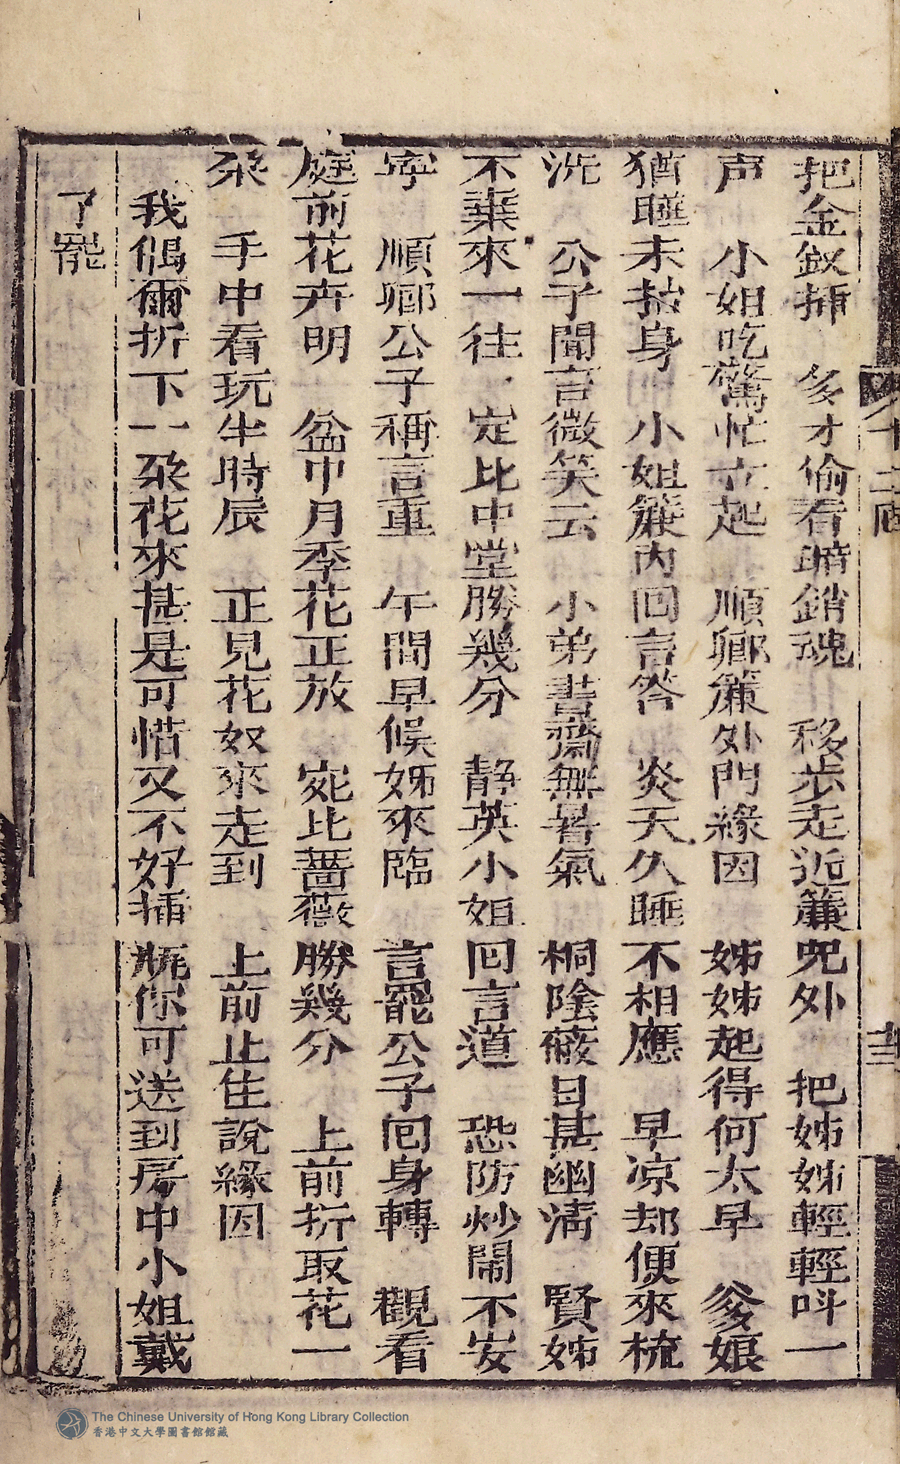 把金釵揷　多才偷看暗銷魂　移步走近簾兒外　把姊姊輕輕呌一
声　小姐吃驚忙立起　順卿簾外門緣因　姊姊起得何太早　爹娘
猶睡未抬身　小姐簾內回言答　炎天久睡不相應　早凉却便來梳
洗　公子聞言微笑云　小弟書齋無暑氣　桐陰蔽日甚幽淸　賢姊
不棄來一往　定比中堂勝幾分　靜英小姐回言道　恐防炒鬧不安
寜　順卿公子稱言重　午間早候姊來臨　言罷公子回身轉　觀看
庭前花卉明　盆中月季花正放　宛比薔薇勝幾分　上前折取花一
朶　手中看玩半時辰　正見花奴來走到　上前止住說緣因
我偶爾折下一朶花來甚是可惜又不好揷瓶你可送到房中小姐戴
了罷
十二囘
The Chinese University of Hong Kong Library Collection
香港中文大學圖書館館藏